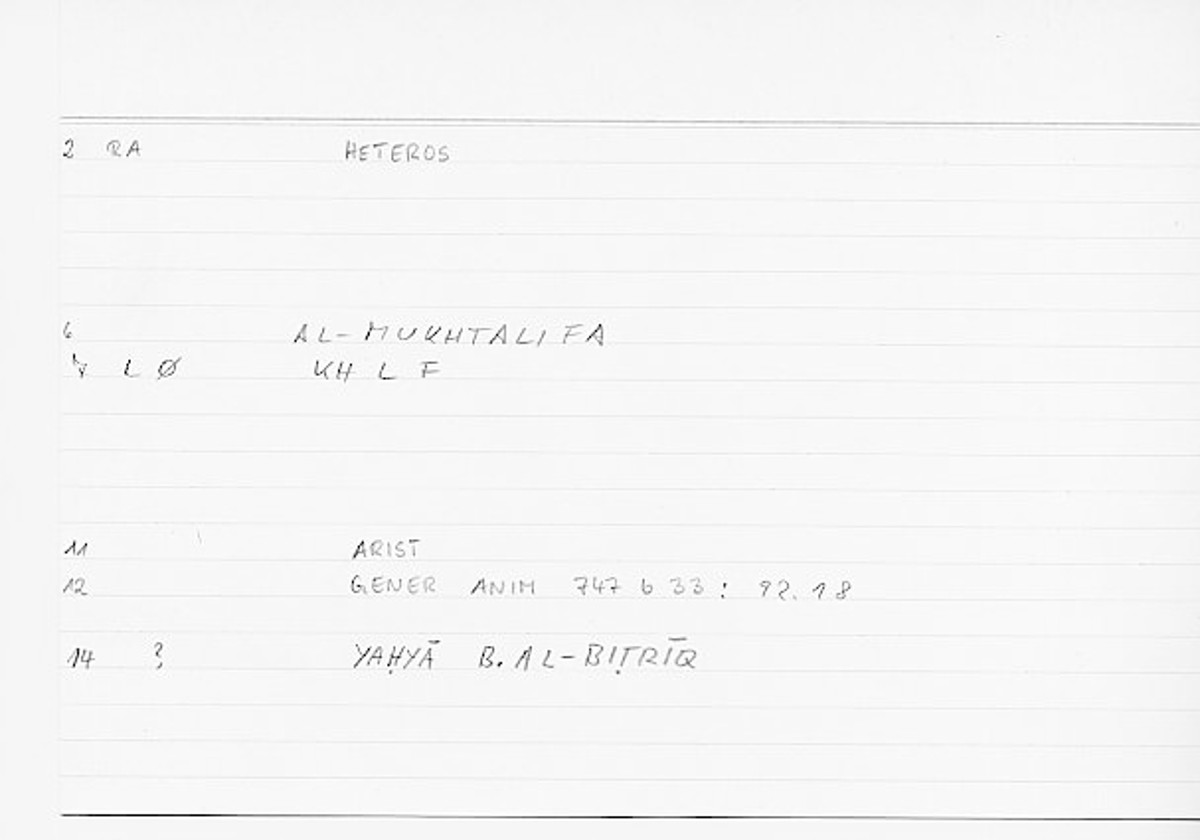 2 RA HETEROS
6 AL-MUKHTALIFA
7 L Ø KH L F
11 ARIST
12 GENER ANIM 747 b 33 : 92.18
14 ? YAḤYĀ B. AL-BIṬRĪQ